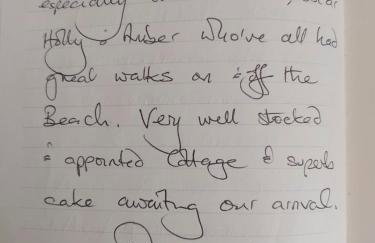 especially
Holly & Amber who've all had
great walks on & off the
Beach. Very well stocked
& appointed Cottage & superb
cake awaiting our arrival.